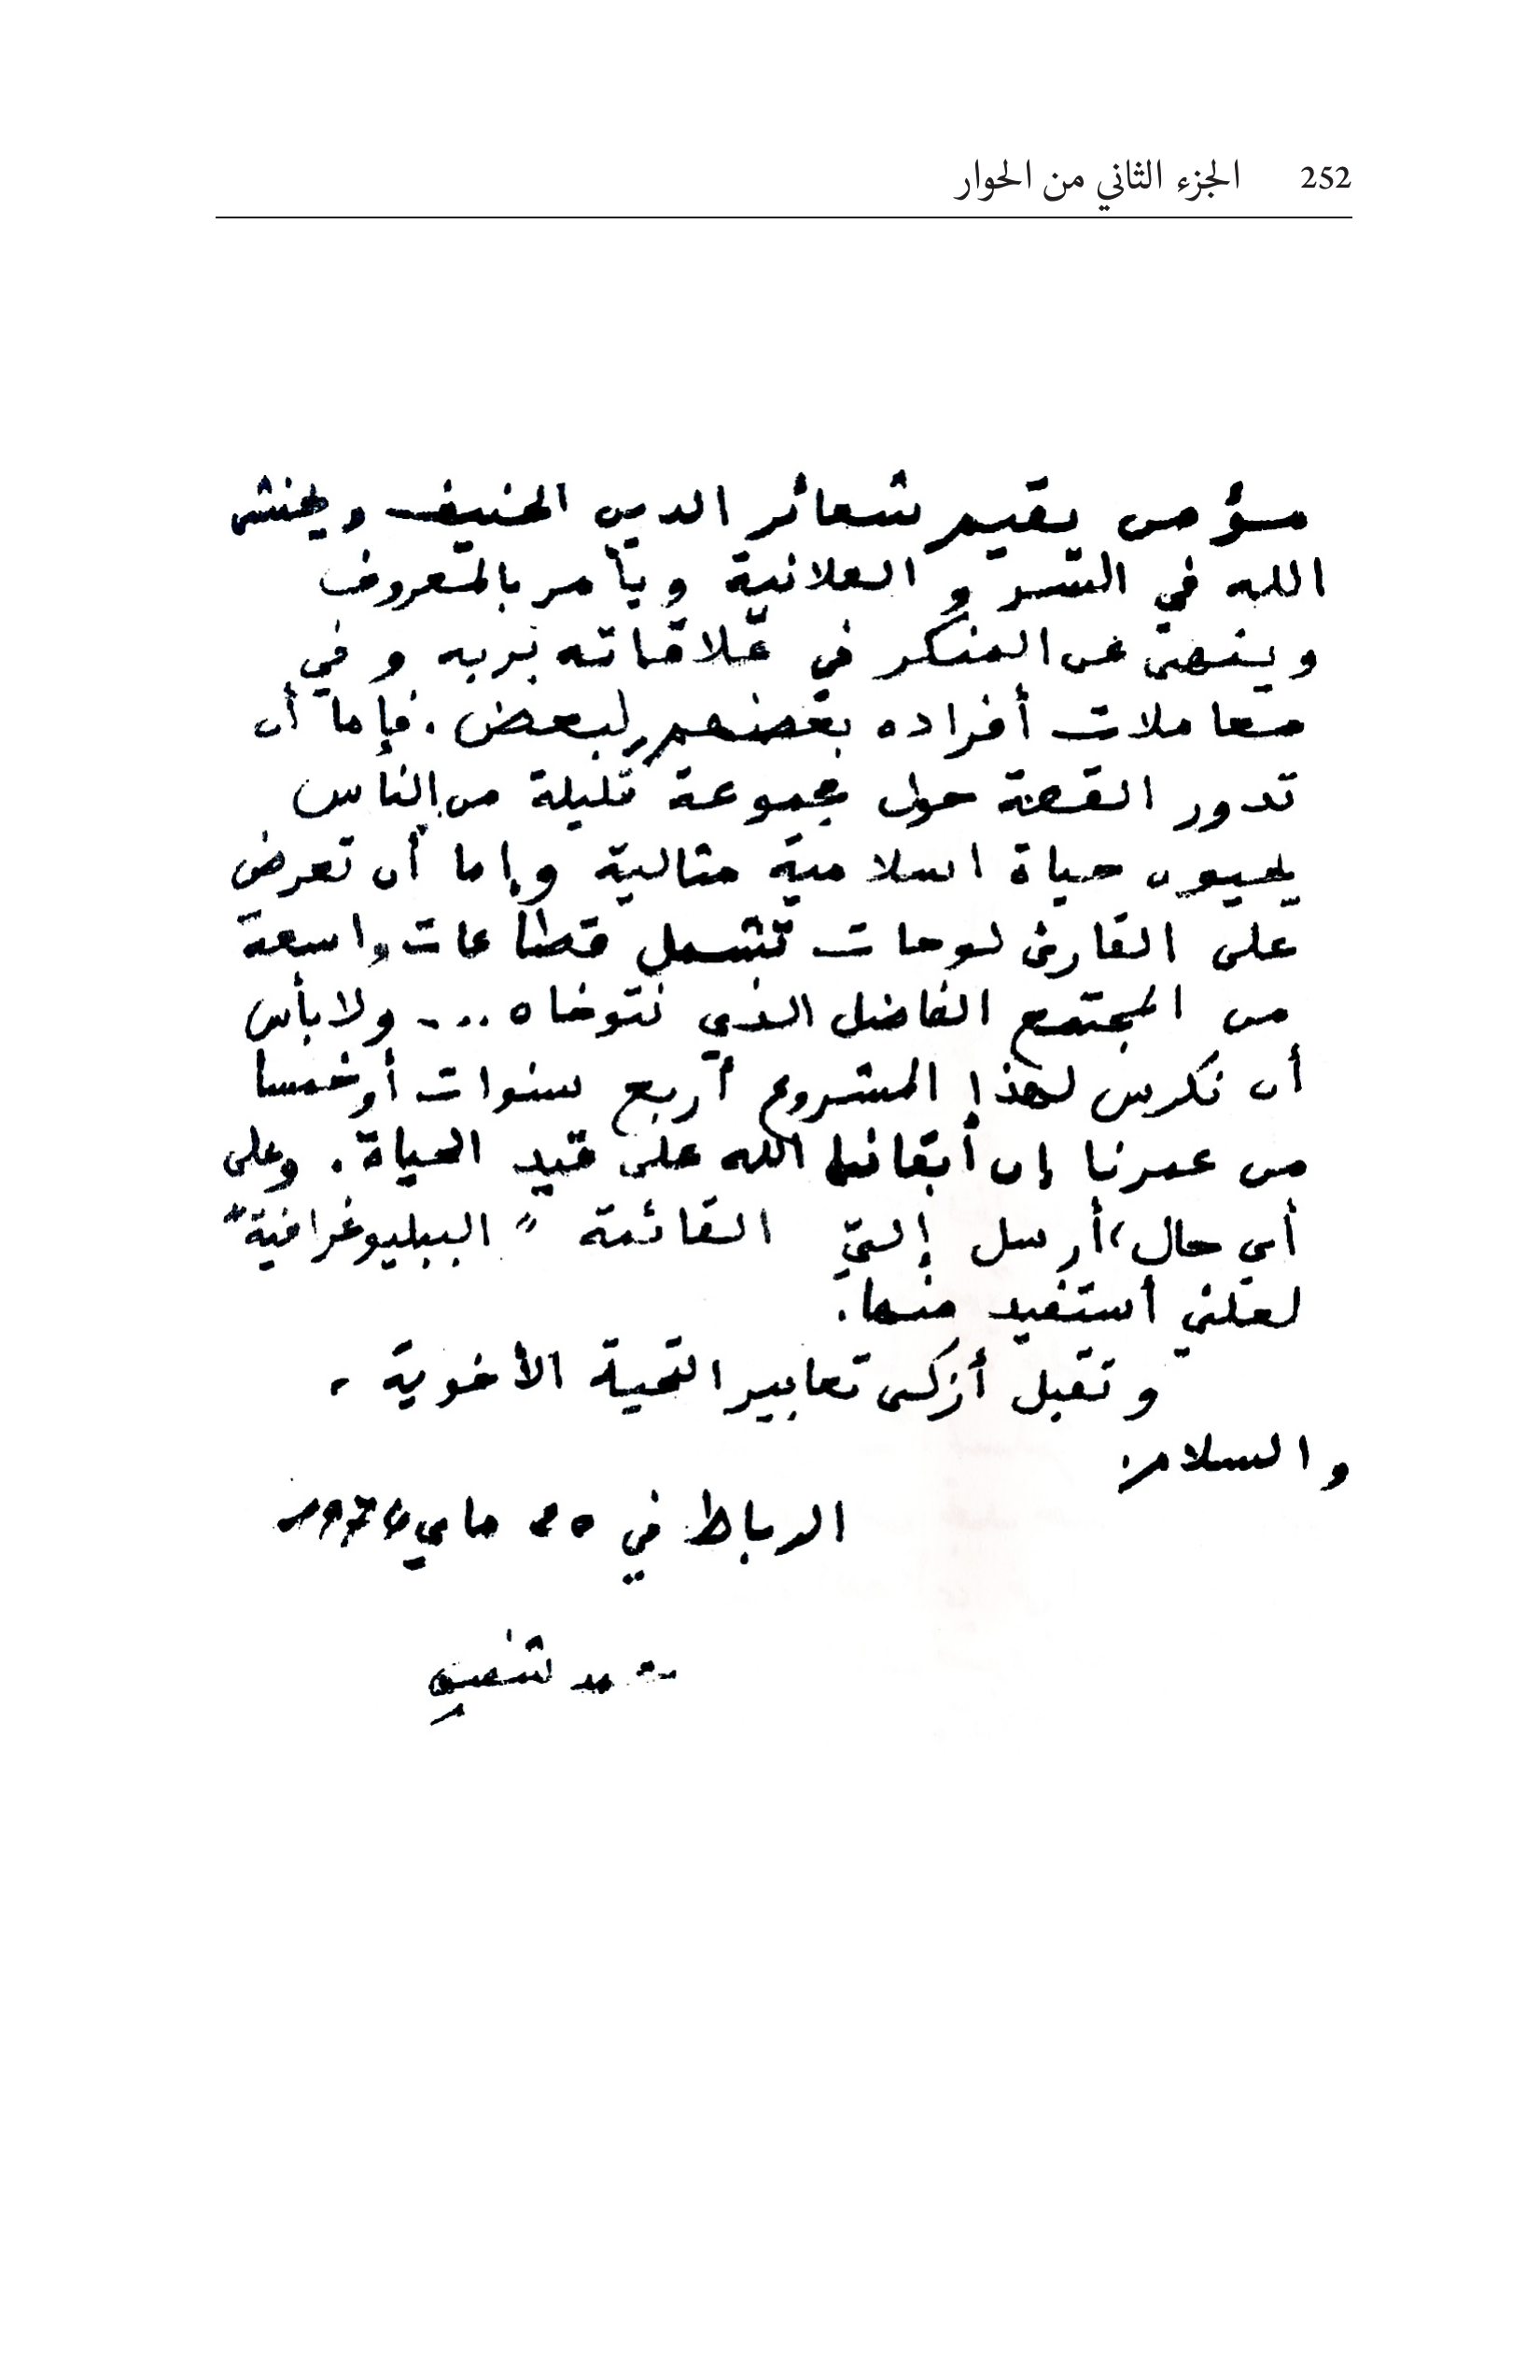 252 الجزء الثاني من الحوار
مؤمن يقيم شعائر الدين الحنيف ويخشى
الله في السر والعلانية ويأمر بالمعروف
وينهى عن المنكر في علاقاته بربه وفي
معاملات أفراده بعضهم لبعض. فإما أن
تدور القصة حول مجموعة قليلة من الناس
يحيون حياة اسلامية مثالية وإما أن تعرض
على القارئ لوحات تشمل قطاعات واسعة
من المجتمع الفاضل الذي نتوخاه ... ولا بأس
أن نكرس لهذا المشروع أربع سنوات أو خمسا
من عمرنا إن أبقانا الله على قيد الحياة. وعلى
أي حال، أرسل إليّ القائمة "الببليوغرافية"
لعلني أستفيد منها.
وتقبل أزكى تعابير التحية الأخوية،
والسلام.
الرباط في 25 ماي 1974
محمد شفيق